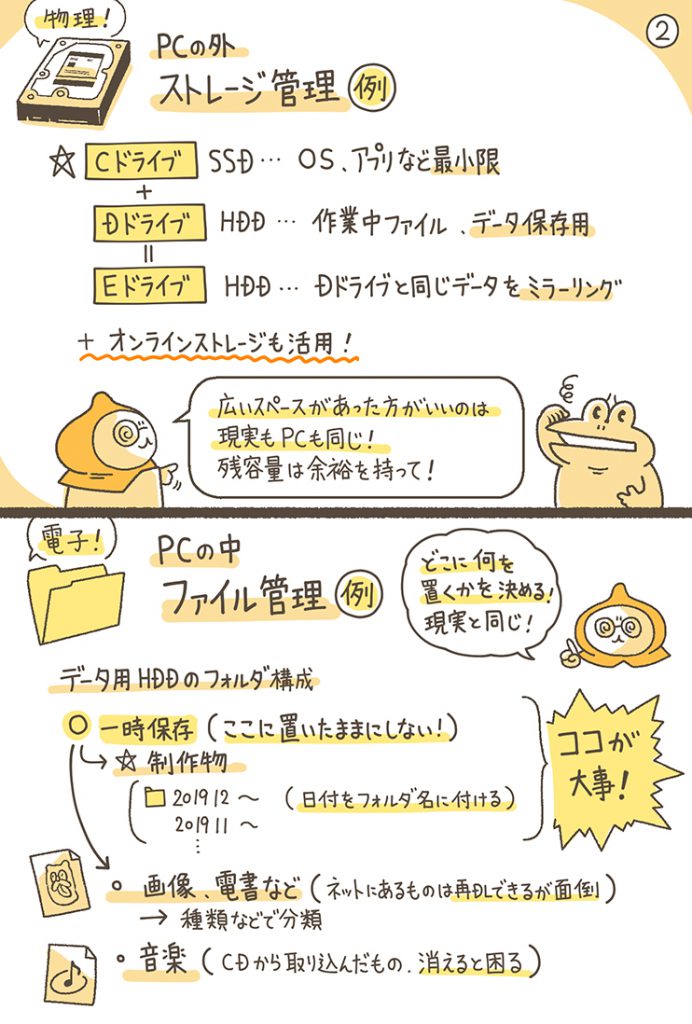 物理!
②
PCの外
ストレージ管理 例
☆ Cドライブ SSD… OS、アプリなど最小限
+
Dドライブ HDD… 作業中ファイル、データ保存用
=
Eドライブ HDD… Dドライブと同じデータをミラーリング
+ オンラインストレージも活用!
広いスペースがあった方がいいのは
現実もPCも同じ!
残容量は余裕を持って!
電子!
PCの中
ファイル管理 例
どこに何を
置くかを決める!
現実と同じ!
データ用HDDのフォルダ構成
○ 一時保存 (ここに置いたままにしない!)
→ ☆ 制作物
201912 〜 (日付をフォルダ名に付ける)
201911 〜
…
ココが
大事!
○ 画像、電書など (ネットにあるものは再DLできるが面倒)
→ 種類などで分類
○ 音楽 (CDから取り込んだもの、消えると困る)